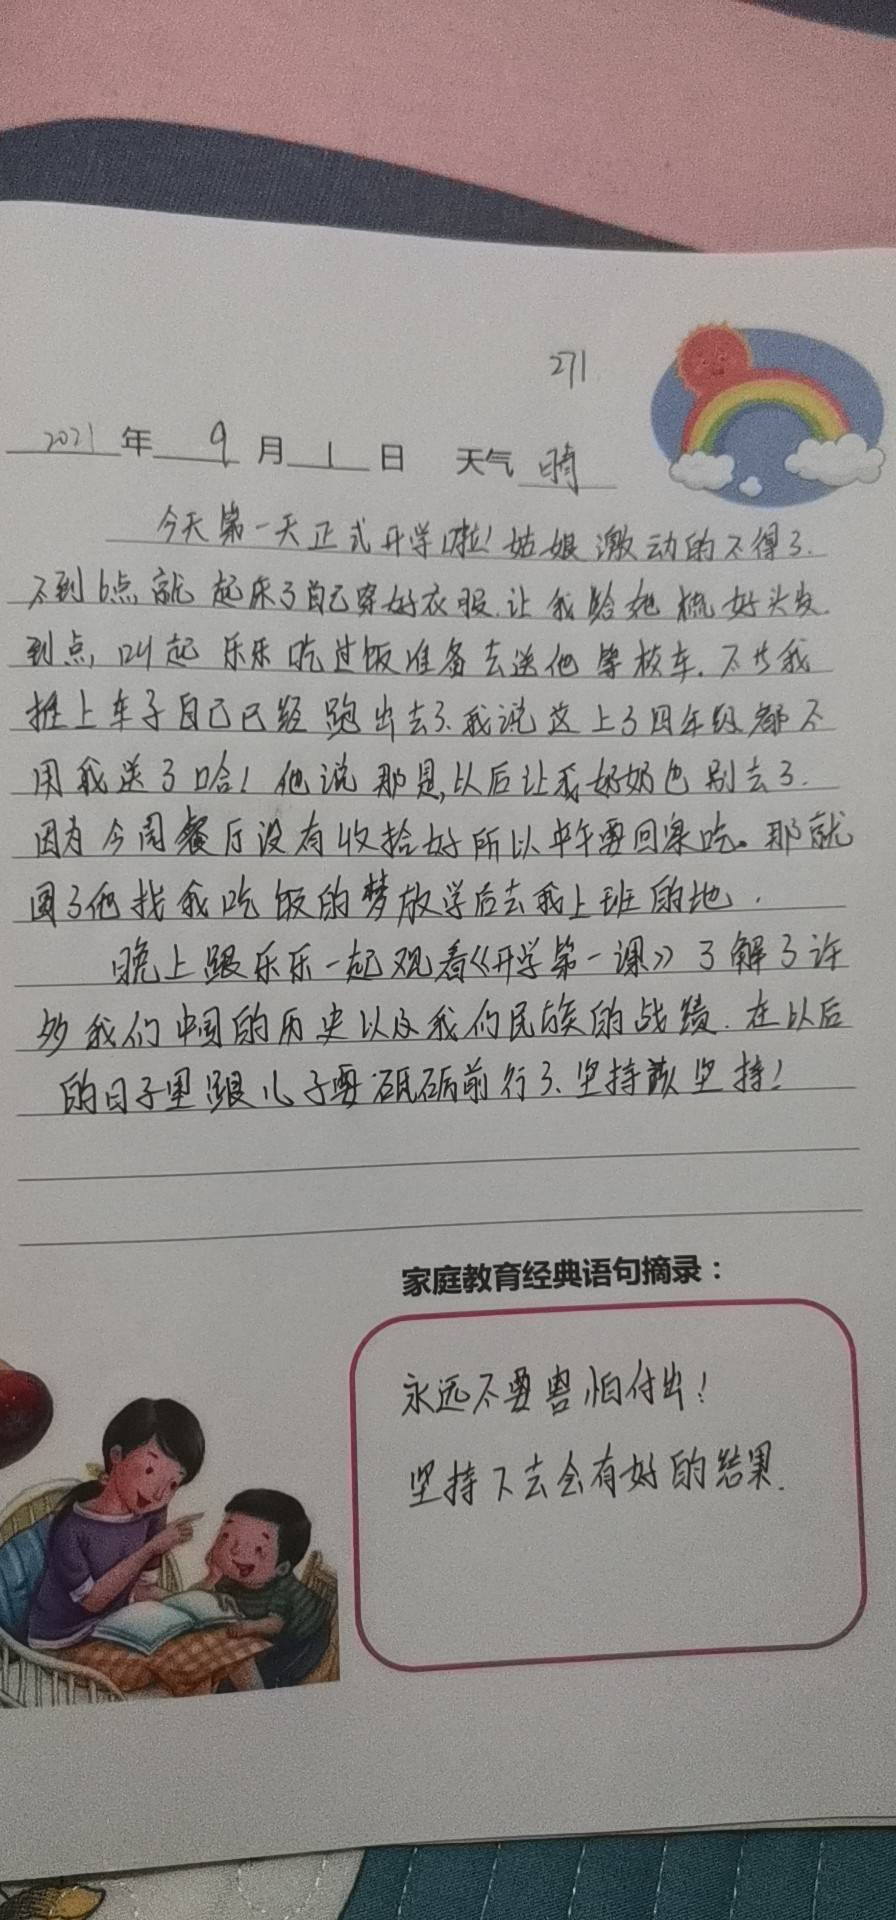 271
2021年9月1日 天气 晴
今天第一天正式开学啦！姑娘激动的不得了.
不到6点就起床了自己穿好衣服.让我给她梳好头发.
到点,叫起乐乐吃过饭准备去送他等校车.不等我
推上车子自己已经跑出去了.我说这上了四年级都不
用我送了哈！他说那是,以后让我奶奶也别去了.
因为今周餐厅没有收拾好所以中午要回家吃。那就
圆了他找我吃饭的梦放学后去我上班的地.
晚上跟乐乐一起观看《开学第一课》了解了许
多我们中国的历史以及我们民族的战绩.在以后
的日子里跟儿子要砥砺前行了、坚持 坚持！
家庭教育经典语句摘录：
永远不要害怕付出！
坚持下去会有好的结果.